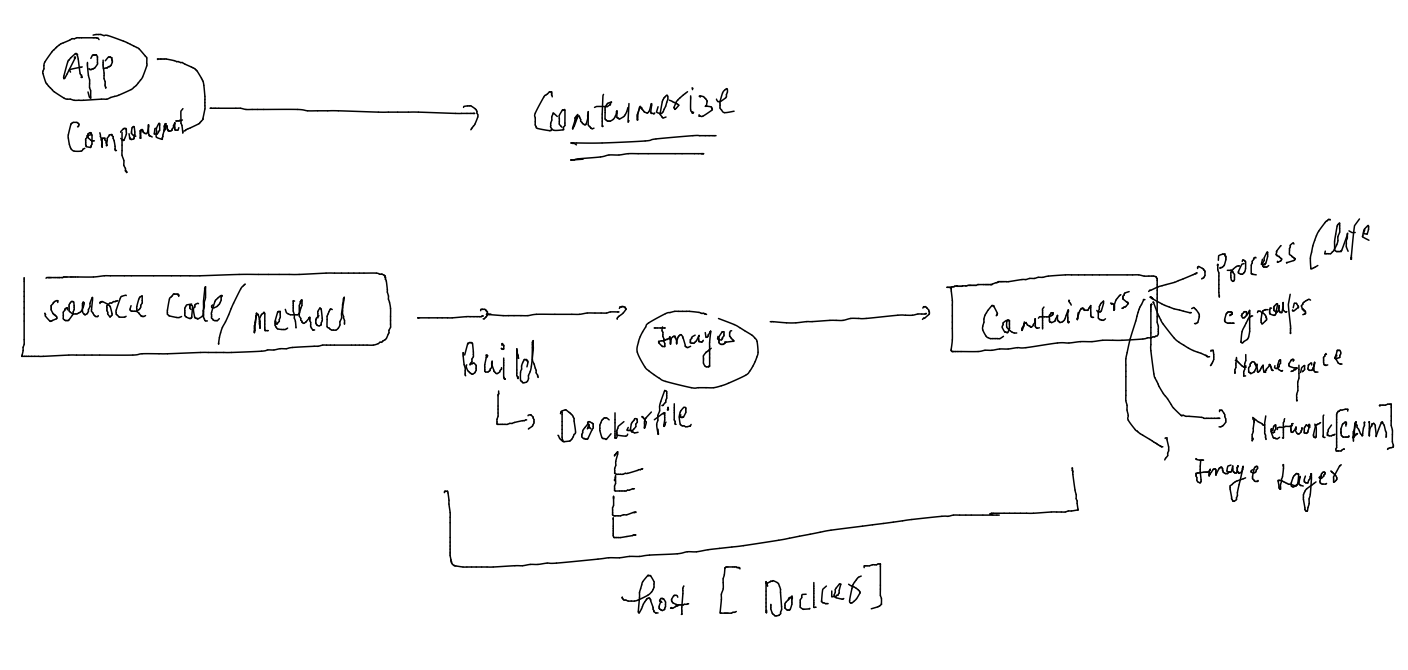 App
Component
Containerize
Source Code/ method
Build
Dockerfile
Images
Containers
Process (life
cgroups
Namespace
Network[CNM]
Image Layer
host [ Docker ]